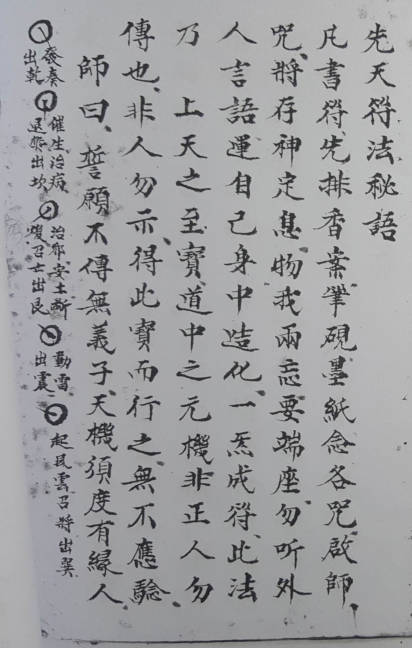 先天符法秘語
凡書符、先排香案筆硯墨紙念各咒啟師、
咒、將存神定息、物我兩忘要端座勿听外
人言語運自己身中造化、一炁成符、此法
乃 上天之至寶道中之元機非正人勿
傳也、非人勿示、得此寶而行之、無不應驗、
師曰、誓願不傳無義子、天機須度有緣人、
發奏出乾 催生治病退熱出坎 治邪安土斷 召亡出艮 勤雷出震 起風雲召將出巽